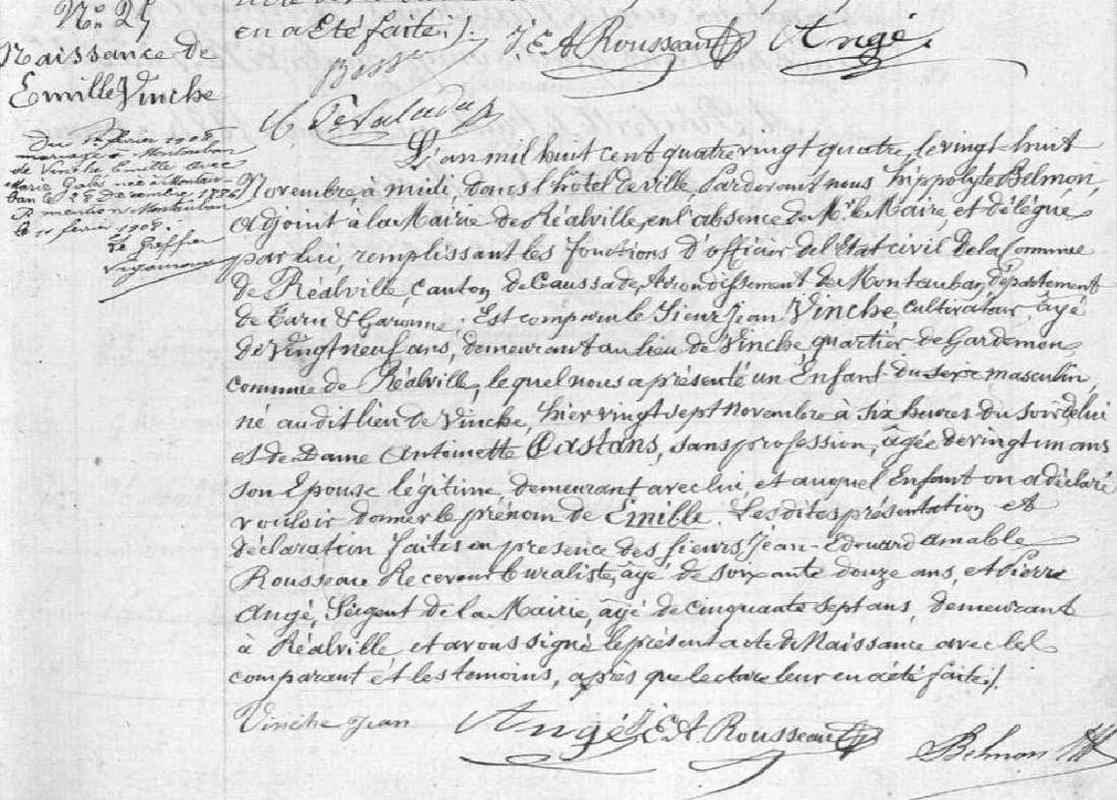 en a Eté faite ./.
J. E. A Rousseau Angé.
N° 25
Naissance de
Emille Vinche
Du 1er février 1908,
mariage à Montauban
de Vinche Emille avec
Marie née à Montau-
ban le 28 Décembre 1886
P. mention Montauban
le 11 février 1908.
Le Greffier
L'an mil huit cent quatre vingt quatre, le vingt-huit
Novembre, à midi, dans l'hôtel de ville, Pardevant nous hippolyte Belmon,
Adjoint à la Mairie de Réalville, en l'absence de Mr. le Maire, et délégué
par lui, remplissant les fonctions d'officier de l'Etat civil de la Commune
de Réalville, canton de Caussade, Arrondissement de Montauban, département
de Tarn & Garonne. Est comparu le Sieur Jean Vinche, cultivateur, âgé
de vingt neuf ans, demeurant au lieu de Vinche quartier de Gardemon,
commune de Réalville, lequel nous a présenté un Enfant du sexe masculin,
né au dit lieu de Vinche, hier vingt sept novembre à six heures du soir, de lui
et de Dame Antoinette Castans, sans profession, âgée de vingt un ans
son Epouse légitime, demeurant avec lui, et auquel Enfant on a déclaré
vouloir donner le prénom de Emille. Les dites présentation et
déclaration faites en présence des sieurs, Jean-Edouard amable
Rousseau Receveur buraliste, âgé de soixante douze ans, et Pierre
Angé, Sergent de la Mairie, âgé de cinquante sept ans, demeurant
à Réalville et avons signé le présent acte de Naissance avec le
comparant et les temoins, après que lecture leur en a été faite ./.
Vinche Jean Angé J. E. A. Rousseau Belmon